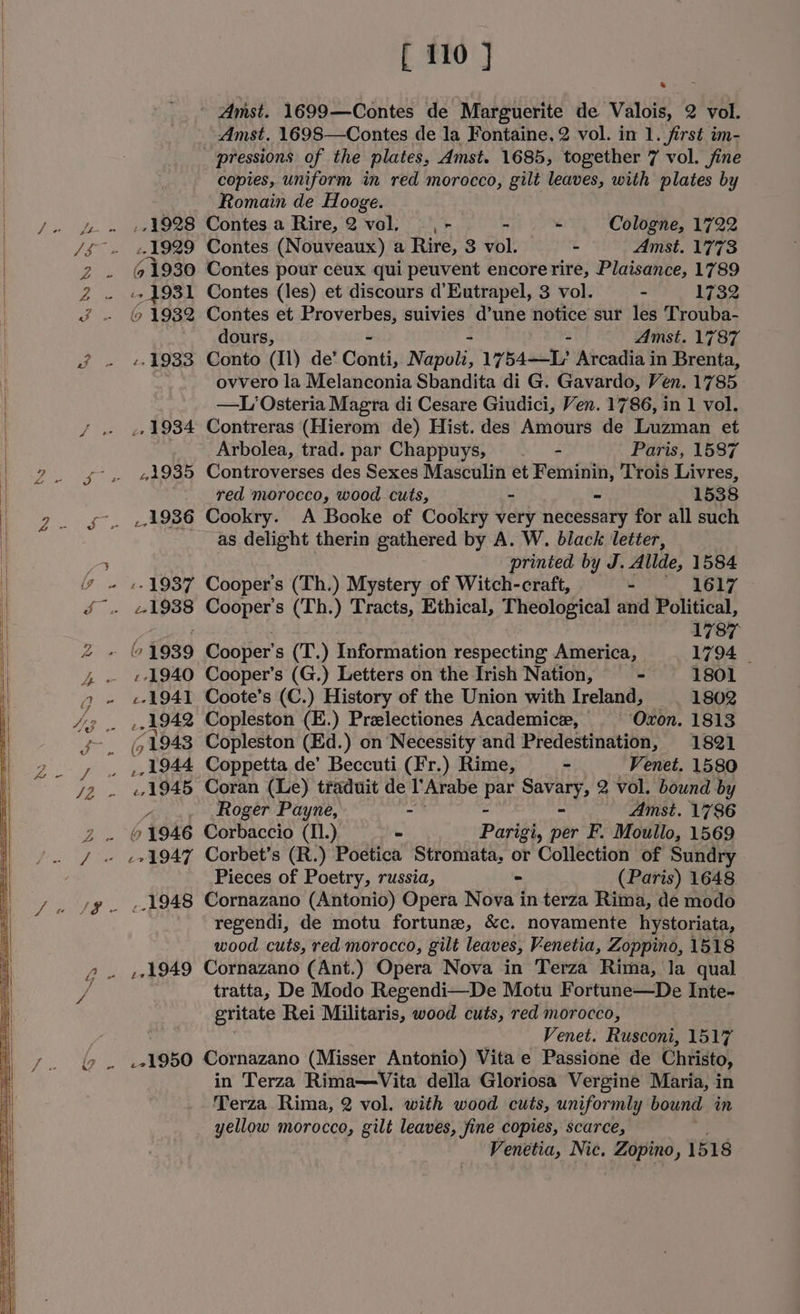 [ 110 ]
Amst. 1699—Contes de Marguerite de Valois, 2 vol.
Amst. 1698—Contes de la Fontaine, 2 vol. in 1. first im-
pressions of the plates, Amst. 1685, together 7 vol. fine
copies, uniform in red morocco, gilt leaves, with plates by
Romain de Hooge.
1928 Contes a Rire, 2 vol. - - - Cologne, 1722
1929 Contes (Nouveaux) a Rire, 3 vol. - Amst. 1773
1930 Contes pour ceux qui peuvent encore rire, Plaisance, 1789
1931 Contes (les) et discours d'Eutrapel, 3 vol. - 1732
1932 Contes et Proverbes, suivies d'une notice sur les Trouba-
dours, - - - Amst. 1787
1933 Conto (Il) de' Conti, Napoli, 1754—L' Arcadia in Brenta,
ovvero la Melanconia Sbandita di G. Gavardo, Ven. 1785
—L'Osteria Magra di Cesare Giudici, Ven. 1786, in 1 vol.
1934 Contreras (Hierom de) Hist. des Amours de Luzman et
Arbolea, trad. par Chappuys, - Paris, 1587
1935 Controverses des Sexes Masculin et Feminin, Trois Livres,
red morocco, wood cuts, - - 1538
1936 Cookry. A Booke of Cookry very necessary for all such
as delight therin gathered by A. W. black letter,
printed by J. Allde, 1584
1937 Cooper's (Th.) Mystery of Witch-craft, - 1617
1938 Cooper's (Th.) Tracts, Ethical, Theological and Political,
1787
1939 Cooper's (T.) Information respecting America, 1794
1940 Cooper's (G.) Letters on the Irish Nation, - 1801
1941 Coote's (C.) History of the Union with Ireland, 1802
1942 Copleston (E.) Prælectiones Academicæ, Oxon. 1813
1943 Copleston (Ed.) on Necessity and Predestination, 1821
1944 Coppetta de' Beccuti (Fr.) Rime, - Venet. 1580
1945 Coran (Le) traduit de l'Arabe par Savary, 2 vol. bound by
Roger Payne, - - - Amst. 1786
1946 Corbaccio (Il.) - Parigi, per F. Moullo, 1569
1947 Corbet's (R.) Poetica Stromata, or Collection of Sundry
Pieces of Poetry, russia, - (Paris) 1648
1948 Cornazano (Antonio) Opera Nova in terza Rima, de modo
regendi, de motu fortunæ, &c. novamente hystoriata,
wood cuts, red morocco, gilt leaves, Venetia, Zoppino, 1518
1949 Cornazano (Ant.) Opera Nova in Terza Rima, la qual
tratta, De Modo Regendi—De Motu Fortune—De Inte-
gritate Rei Militaris, wood cuts, red morocco,
Venet. Rusconi, 1517
1950 Cornazano (Misser Antonio) Vita e Passione de Christo,
in Terza Rima—Vita della Gloriosa Vergine Maria, in
Terza Rima, 2 vol. with wood cuts, uniformly bound in
yellow morocco, gilt leaves, fine copies, scarce,
Venetia, Nic. Zopino, 1518